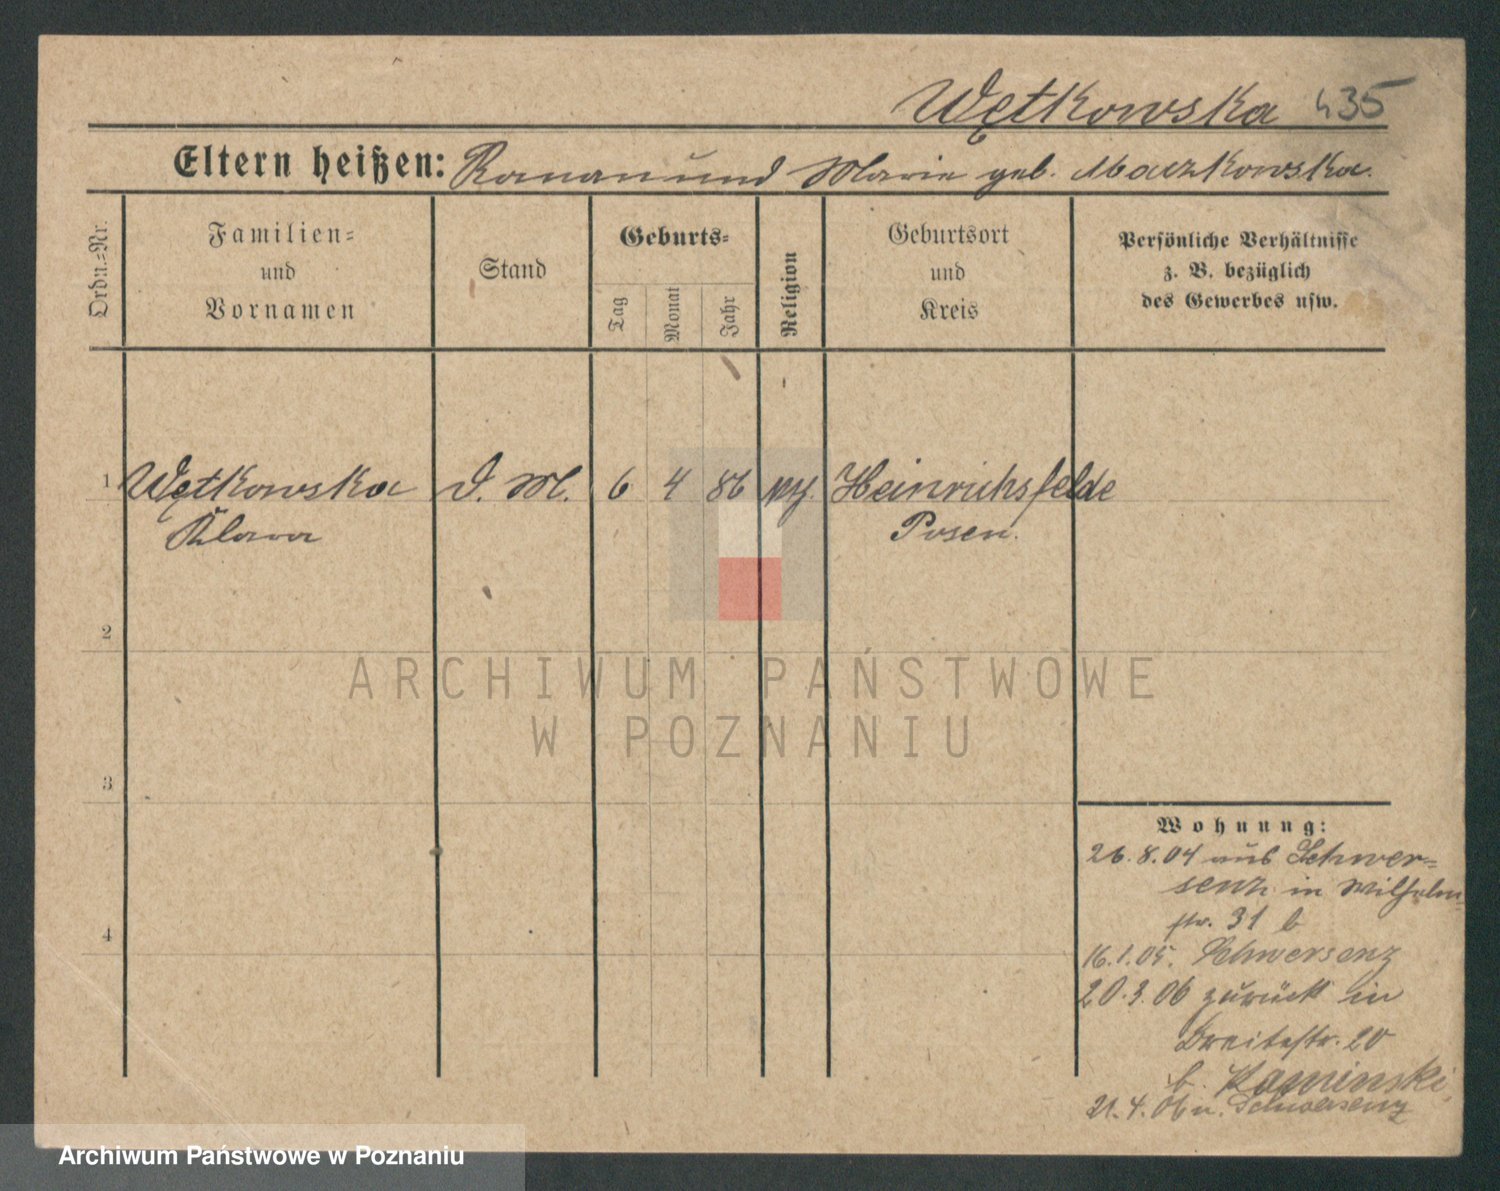 Wętkowska 435
Eltern heißen: Roman und Marie geb. Maczkowska.
Ordn.-Nr.
Familien-
und
Vornamen
Stand
Geburts-
Tag
Monat
Jahr
Religion
Geburtsort
und
Kreis
Persönliche Verhältnisse
z. B. bezüglich
des Gewerbes usw.
1 Wętkowska D. M. 6 4 86 Heinrichsfelde
Klara Posen.
2
ARCHIWUM PAŃSTWOWE
W POZNANIU
3
Wohnung:
26.8.04 aus Schwer-
senz in Wilhelm-
str. 31 b
4
16.1.05. Schwersenz
20.3.06 zurück in
Breitestr. 20
b. Kaminski
21.4. 06 n. Schwersenz
Archiwum Państwowe w Poznaniu